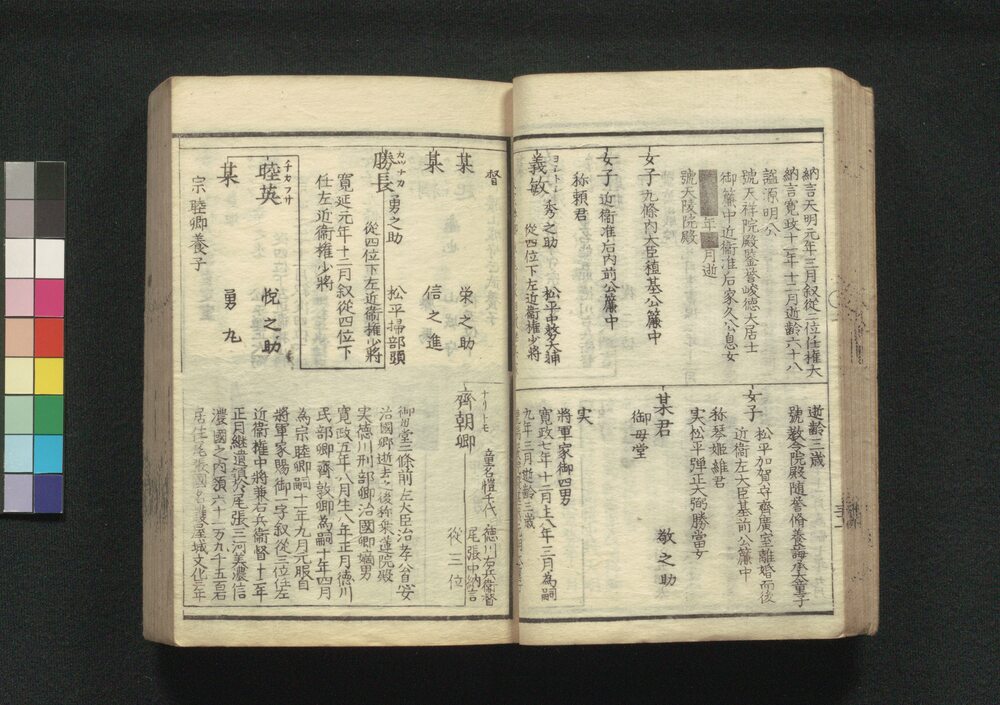 納言天明元年三月叙從二位任權大
納言寛政十一年十二月逝齢六十八
諡源明公
號天祥院殿鑒誉峻德大居士
御簾中近衛准后家久公息女
年 月逝
號天陵院殿
女子 九條内大臣稙基公簾中
女子 近衞准后内前公簾中
称頼君
ヨシトシ
義敏 秀之助 松平中務大輔
從四位下左近衞權少將
逝齢三歳
號教念院殿随誉脩善誨承大童子
女子 松平加賀守齊廣室離婚而後
近衛左大臣基前公簾中
称琴姫維君
実松平弾正大弼勝當女
某君 敬之助
御母堂
実
將軍家御四男
寛政七年十二月上八年三月為嗣
九年三月逝齢三歳
督
某 栄之助
某 信之進
カツナカ
勝長 勇之助 松平掃部頭
從四位下左近衞權少將
寛延元年十二月叙從四位下
任左近衞權少將
チカフサ
睦英 悦之助
某 勇九
宗睦卿養子
ナリトモ
齊朝卿 童名愷千代 德川右兵衞督
尾張中納言
從三位
御母堂二條前左大臣治孝公息安
治國卿逝去之後称乗蓮院殿
実德川刑部卿治國卿嫡男
寛政五年八月生八年正月德川
民部卿齊敦卿為嗣十年四月
為宗睦卿嗣十年九月元服自
將軍家賜御一字叙從三位任左
近衞權中將兼右兵衞督十二年
正月継遺領於尾張三河美濃信
濃國之内領六十一万九千五百石
居住尾張國名護屋城文化元年